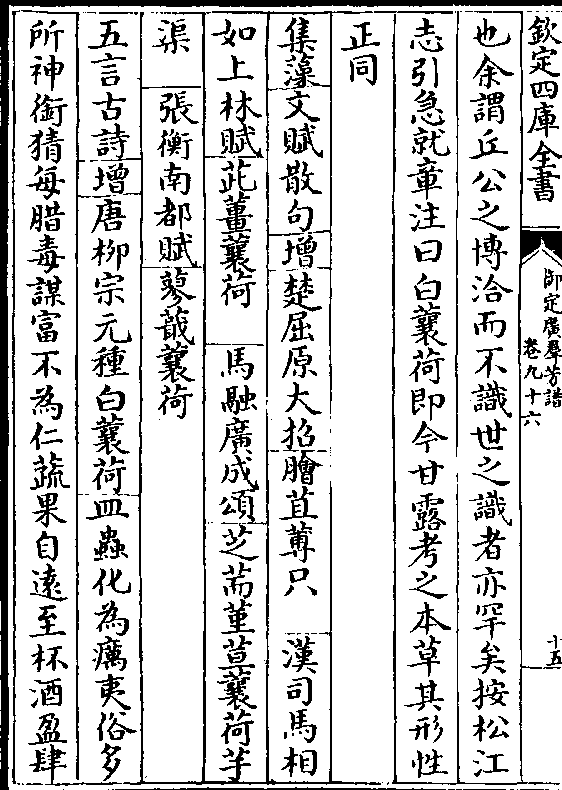 欽定四庫全書
御定廣羣芳譜
卷九十六
十五
也余謂丘公之博洽而不識世之識者亦罕矣按松江
志引急就章注曰白蘘荷即今甘露考之本草其形性
正同
集藻文賦散句增楚屈原大招膾苴蓴只 漢司馬相
如上林賦茈薑蘘荷 馬融廣成頌芝荋菫荁蘘荷芋
渠 張衡南都賦蓼蕺蘘荷
五言古詩增唐栁宗元種白蘘荷皿蟲化為癘夷俗多
所神銜猜每腊毒謀富不為仁蔬果自遠至杯酒盈肆